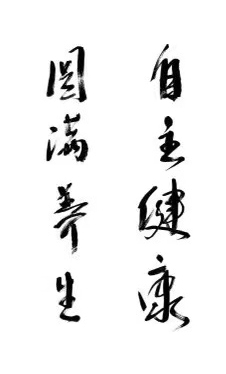 自主健康
圆满养生